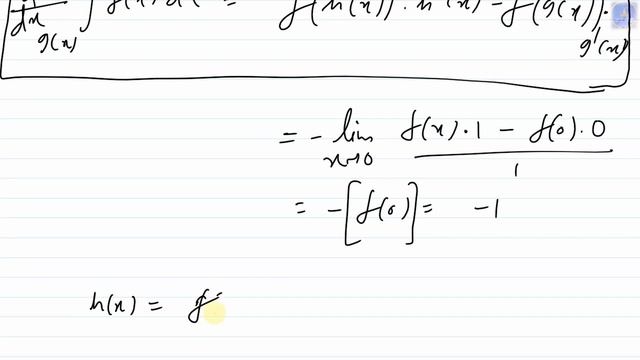 g(x)
f(h(x)) · h'(x) - f(g(x)) ·
g'(x)
= - lim x→0 f(x)·1 - f(0)·0 / 1
= -[f(0)] = -1
h(x) = f